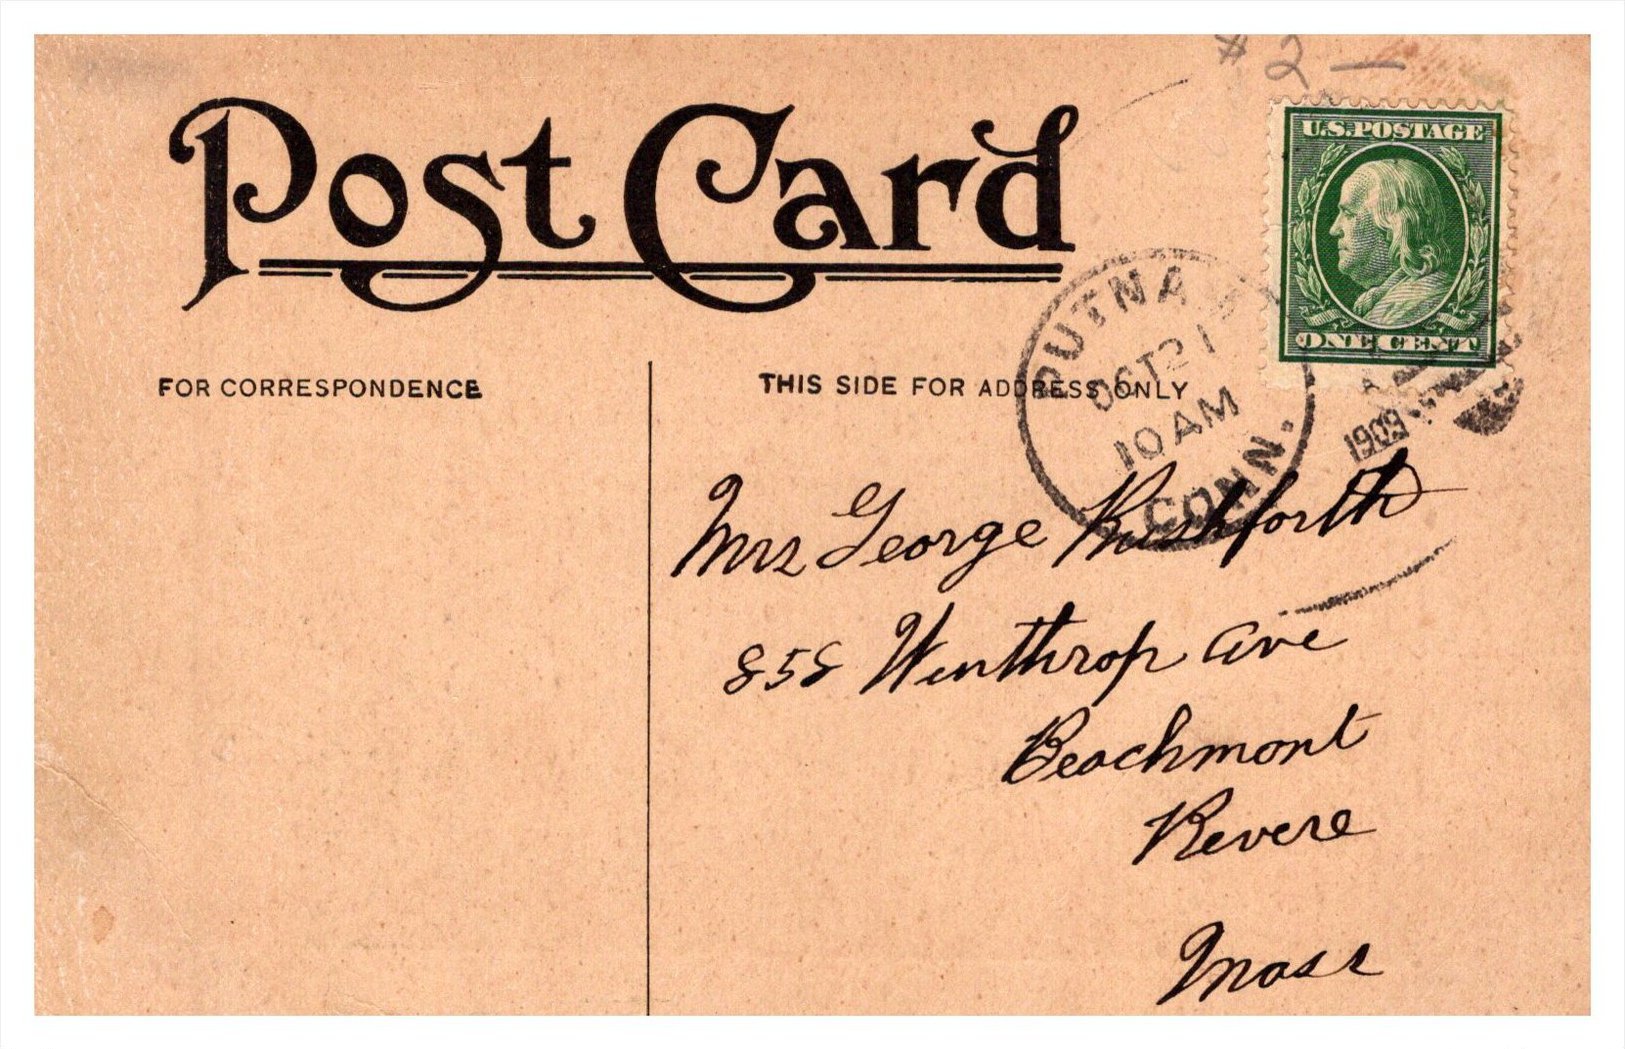 # 2 —
Post Card
U.S. POSTAGE
ONE CENT
FOR CORRESPONDENCE
THIS SIDE FOR ADDRESS ONLY
PUTNA
OCT 21
10 AM
CONN.
1909
Mrs George Rushforth
858 Winthrop Ave
Beachmont
Revere
Mass